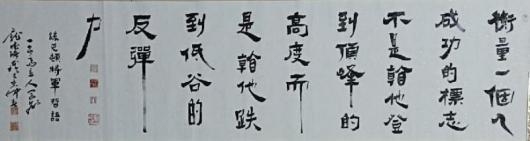 衡量一個人
成功的標志
不是看他登
到頂峰的
高度而
是看他跌
到低谷的
反彈
力
巴頓將軍 哲語